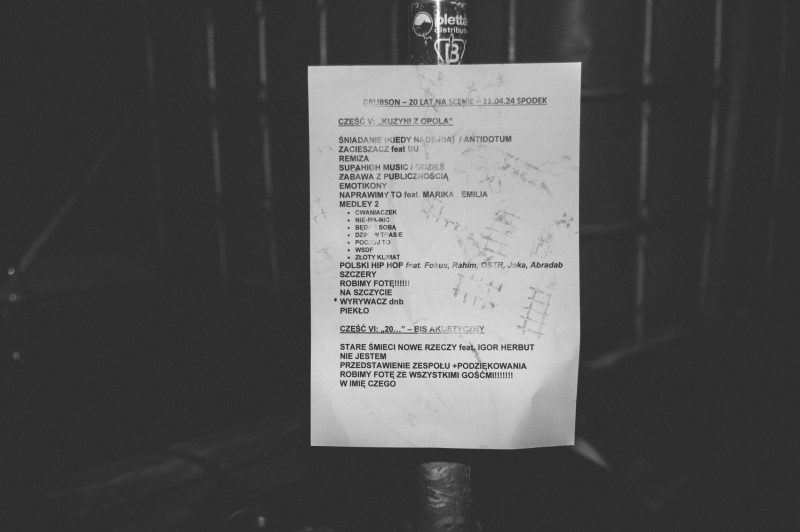 pletta
distribut
B
GRUBSON – 20 LAT NA SCENIE – 11.04.24 SPODEK
CZĘŚĆ V: „KUZYNI Z OPOLA”
ŚNIADANIE (KIEDY NADEJDĄ) / ANTIDOTUM
ZACIESZACZ feat BU
REMIZA
SUPAHIGH MUSIC / GDZIEŚ
ZABAWA Z PUBLICZNOŚCIĄ
EMOTIKONY
NAPRAWIMY TO feat. MARIKA , EMILIA
MEDLEY 2
• CWANIACZEK
• NIE-MA-NIC
• BĘDĘ SOBĄ
• DZIEŃ W TRASIE
• POCZUJ TO
• WSDF
• ZŁOTY KLIMAT
POLSKI HIP HOP feat. Fokus, Rahim, OSTR, Joka, Abradab
SZCZERY
ROBIMY FOTĘ!!!!!!
NA SZCZYCIE
* WYRYWACZ dnb
PIEKŁO
CZĘŚĆ VI: „20...” – BIS AKUSTYCZNY
STARE ŚMIECI NOWE RZECZY feat. IGOR HERBUT
NIE JESTEM
PRZEDSTAWIENIE ZESPOŁU +PODZIĘKOWANIA
ROBIMY FOTĘ ZE WSZYSTKIMI GOŚĆMI!!!!!!!
W IMIĘ CZEGO